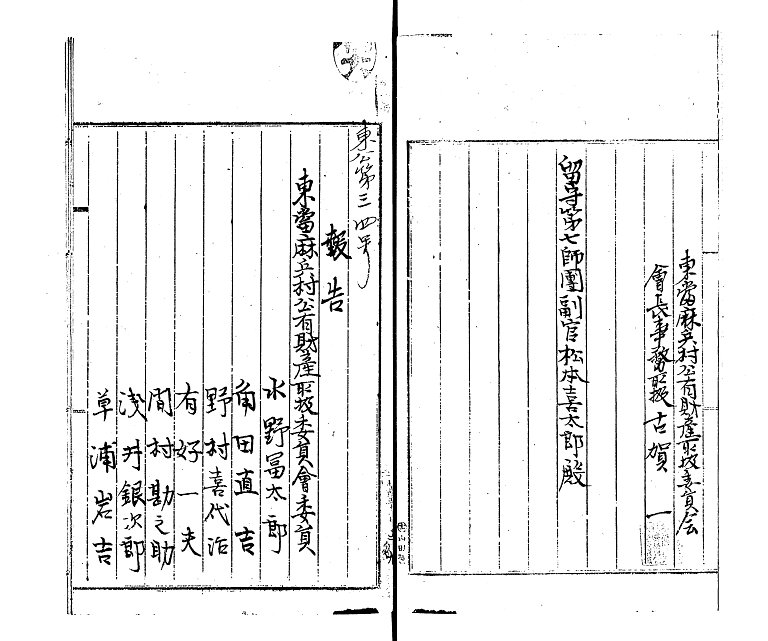 東當麻兵村公有財産取扱委員会
會長事務取扱 古賀 一
留守第七師團副官松本喜太郎殿
東公第三四号
報告
東當麻兵村公有財産取扱委員會委員
水野冨太郎
角田直吉
野村喜代治
有好一夫
間村勘之助
淺井銀次郎
草浦岩吉